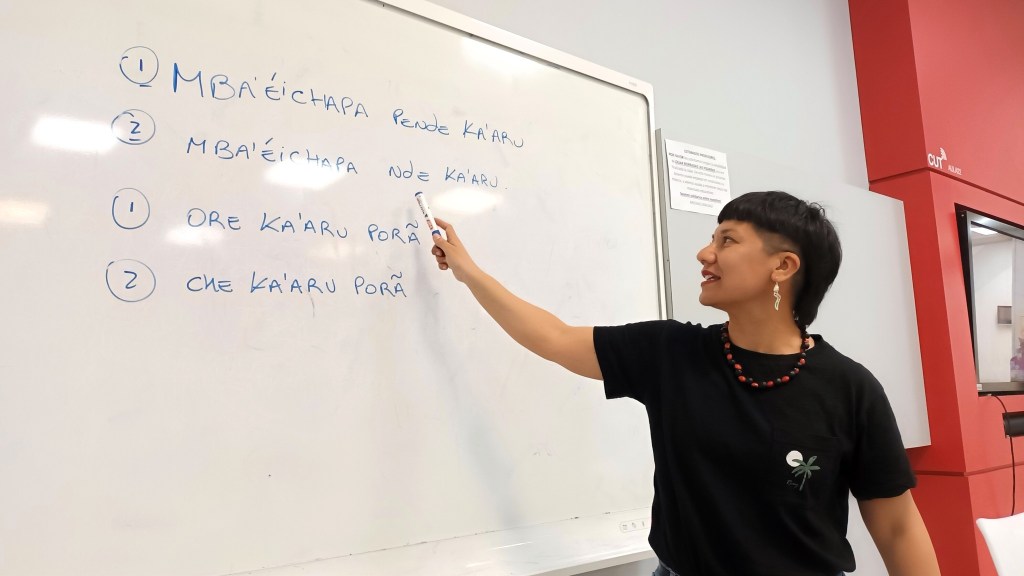 ① MBA'ÉICHAPA PENDE KA'ARU
② MBA'ÉICHAPA NDE KA'ARU.
① ORE KA'ARU PORÃ
② CHE KA'ARU PORÃ
CUT